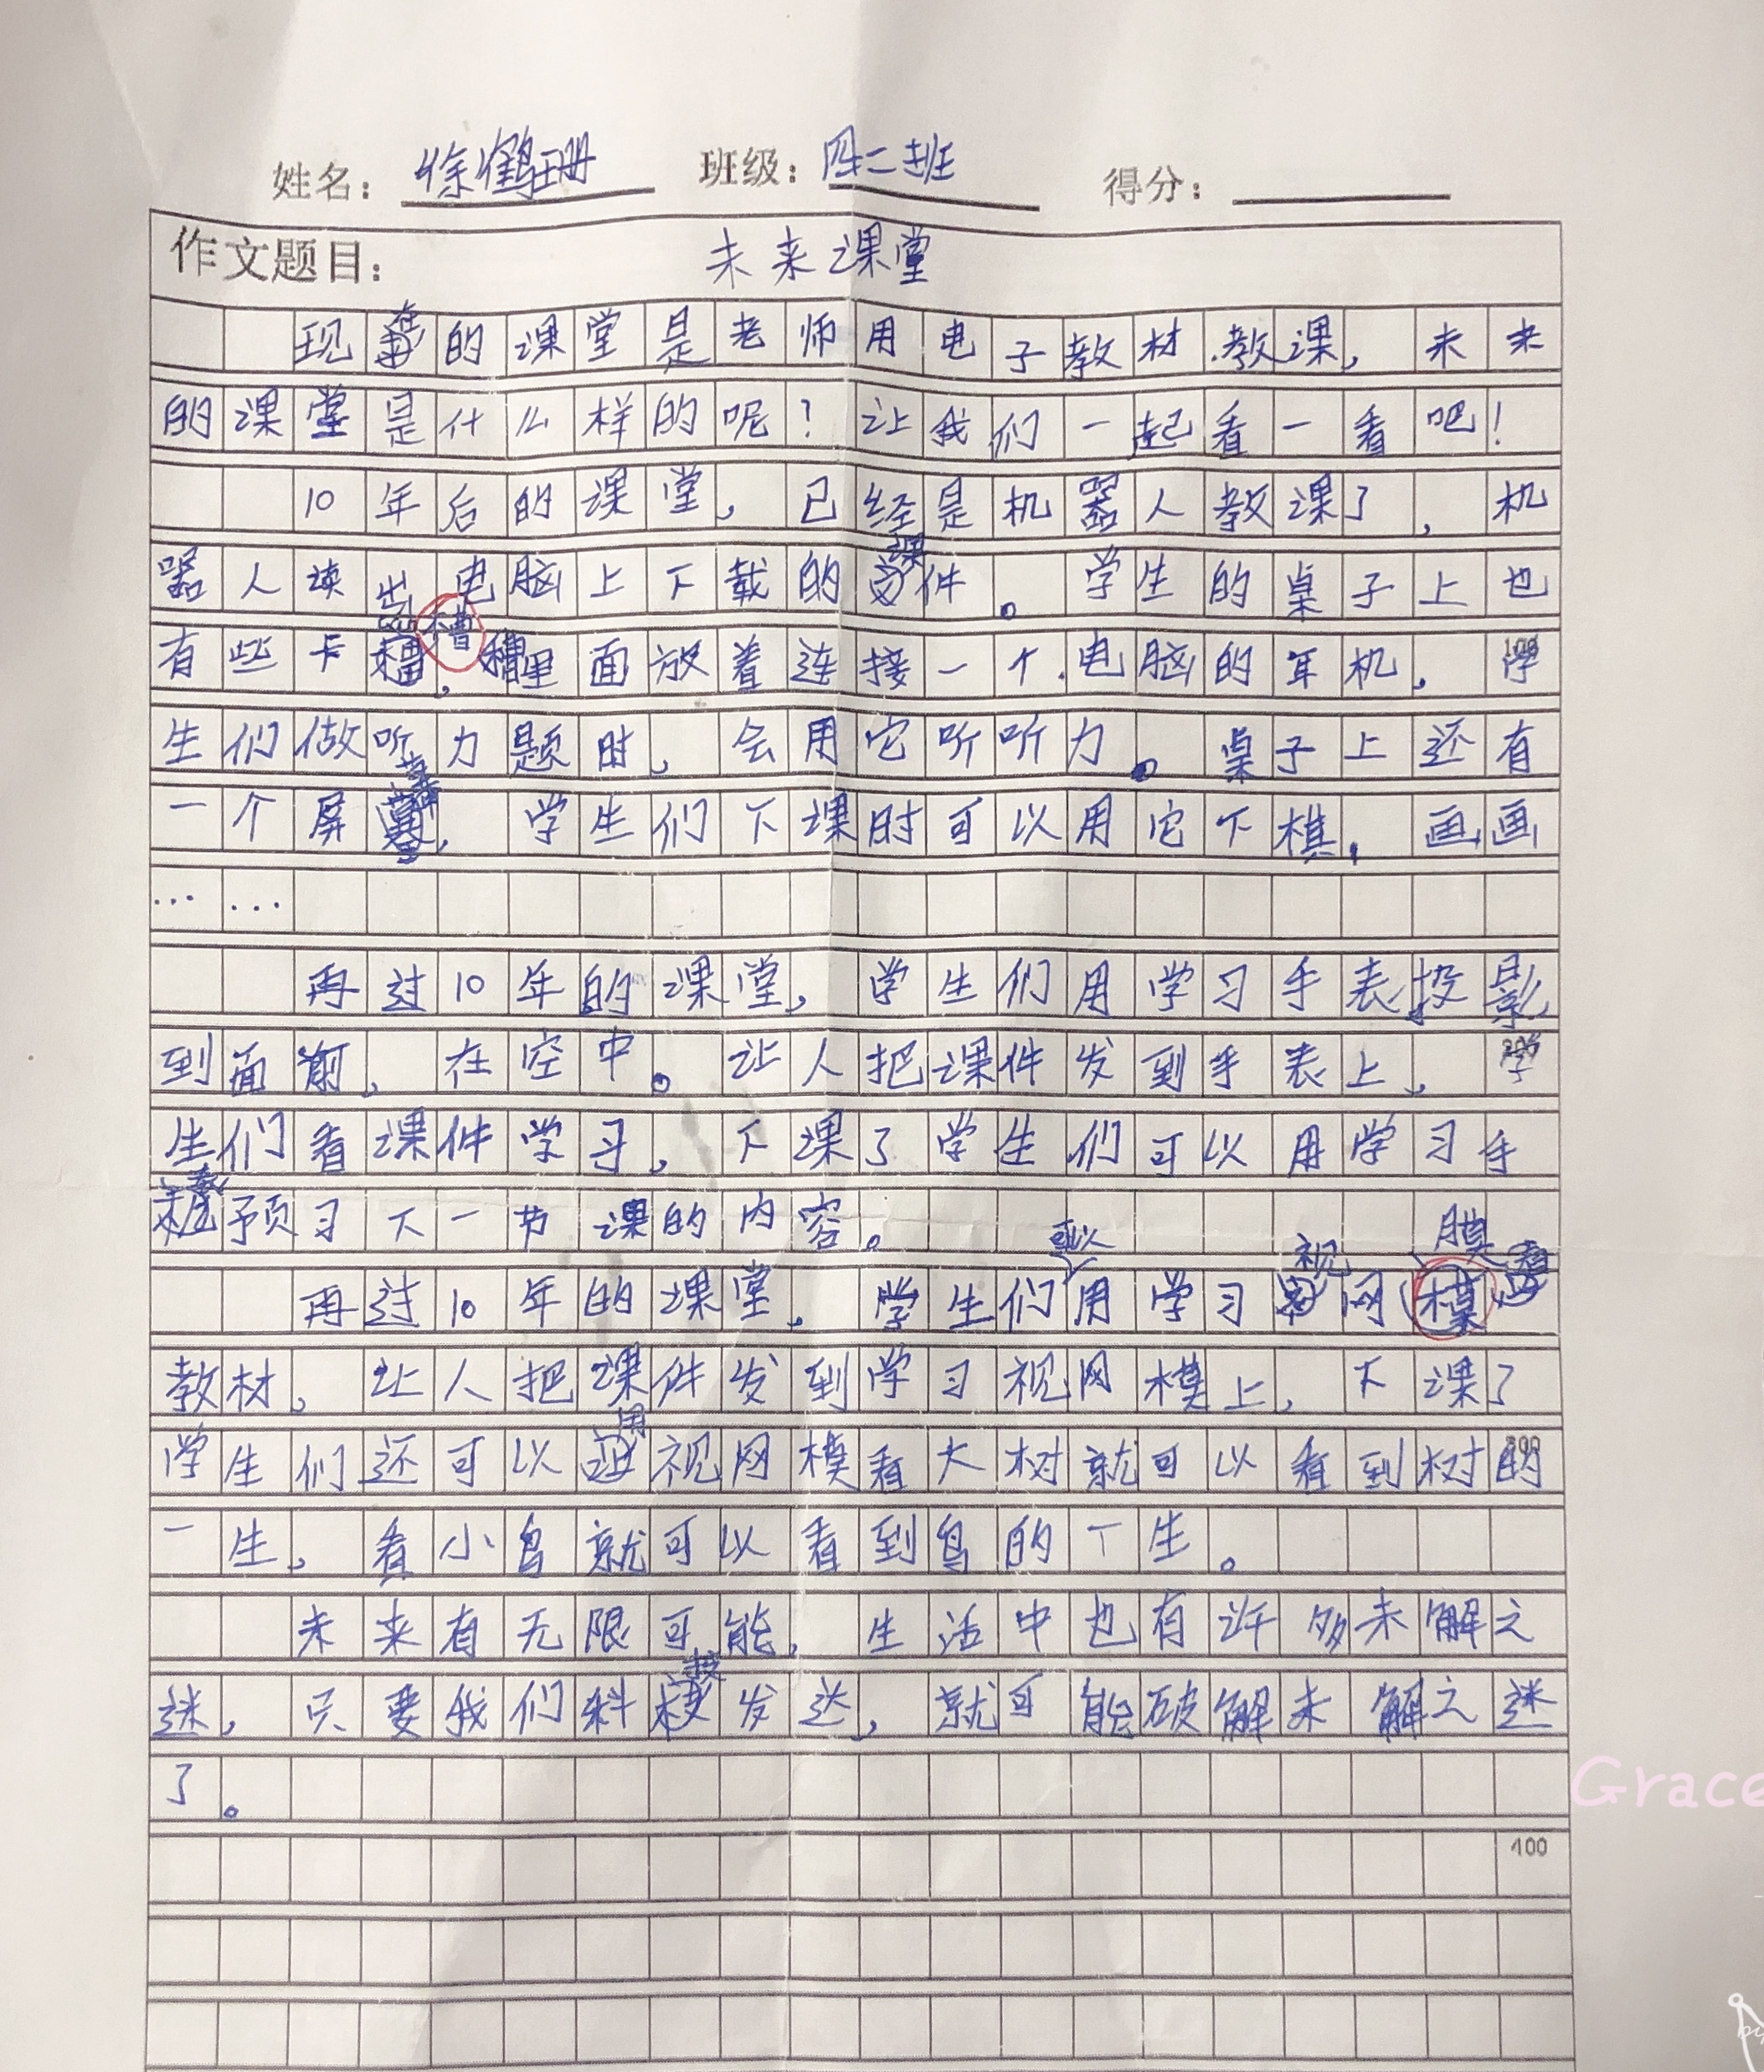 姓名：徐鹤珊 班级：四二班 得分：
作文题目： 未来课堂
现在的课堂是老师用电子教材教课，未来
的课堂是什么样的呢？让我们一起看一看吧！
10年后的课堂，已经是机器人教课了，机
器人读出电脑上下载的课件。学生的桌子上也
有些卡槽，槽里面放着连接一个电脑的耳机，学
生们做听力题时，会用它听听力。桌子上还有
一个屏幕，学生们下课时可以用它下棋，画画
……
再过10年的课堂，学生们用学习手表投影
到面前，在空中。让人把课件发到手表上，学
生们看课件学习，下课了学生们可以用学习手
表预习下一节课的内容。
再过10年的课堂，学生们可以用学习视网膜看
教材，让人把课件发到学习视网模上，下课了
学生们还可以用视网模看大树就可以看到树的
一生，看小鸟就可以看到鸟的一生。
未来有无限可能，生活中也有许多未解之
迷，只要我们科技发达，就可能破解未解之迷
了。
400
Grace